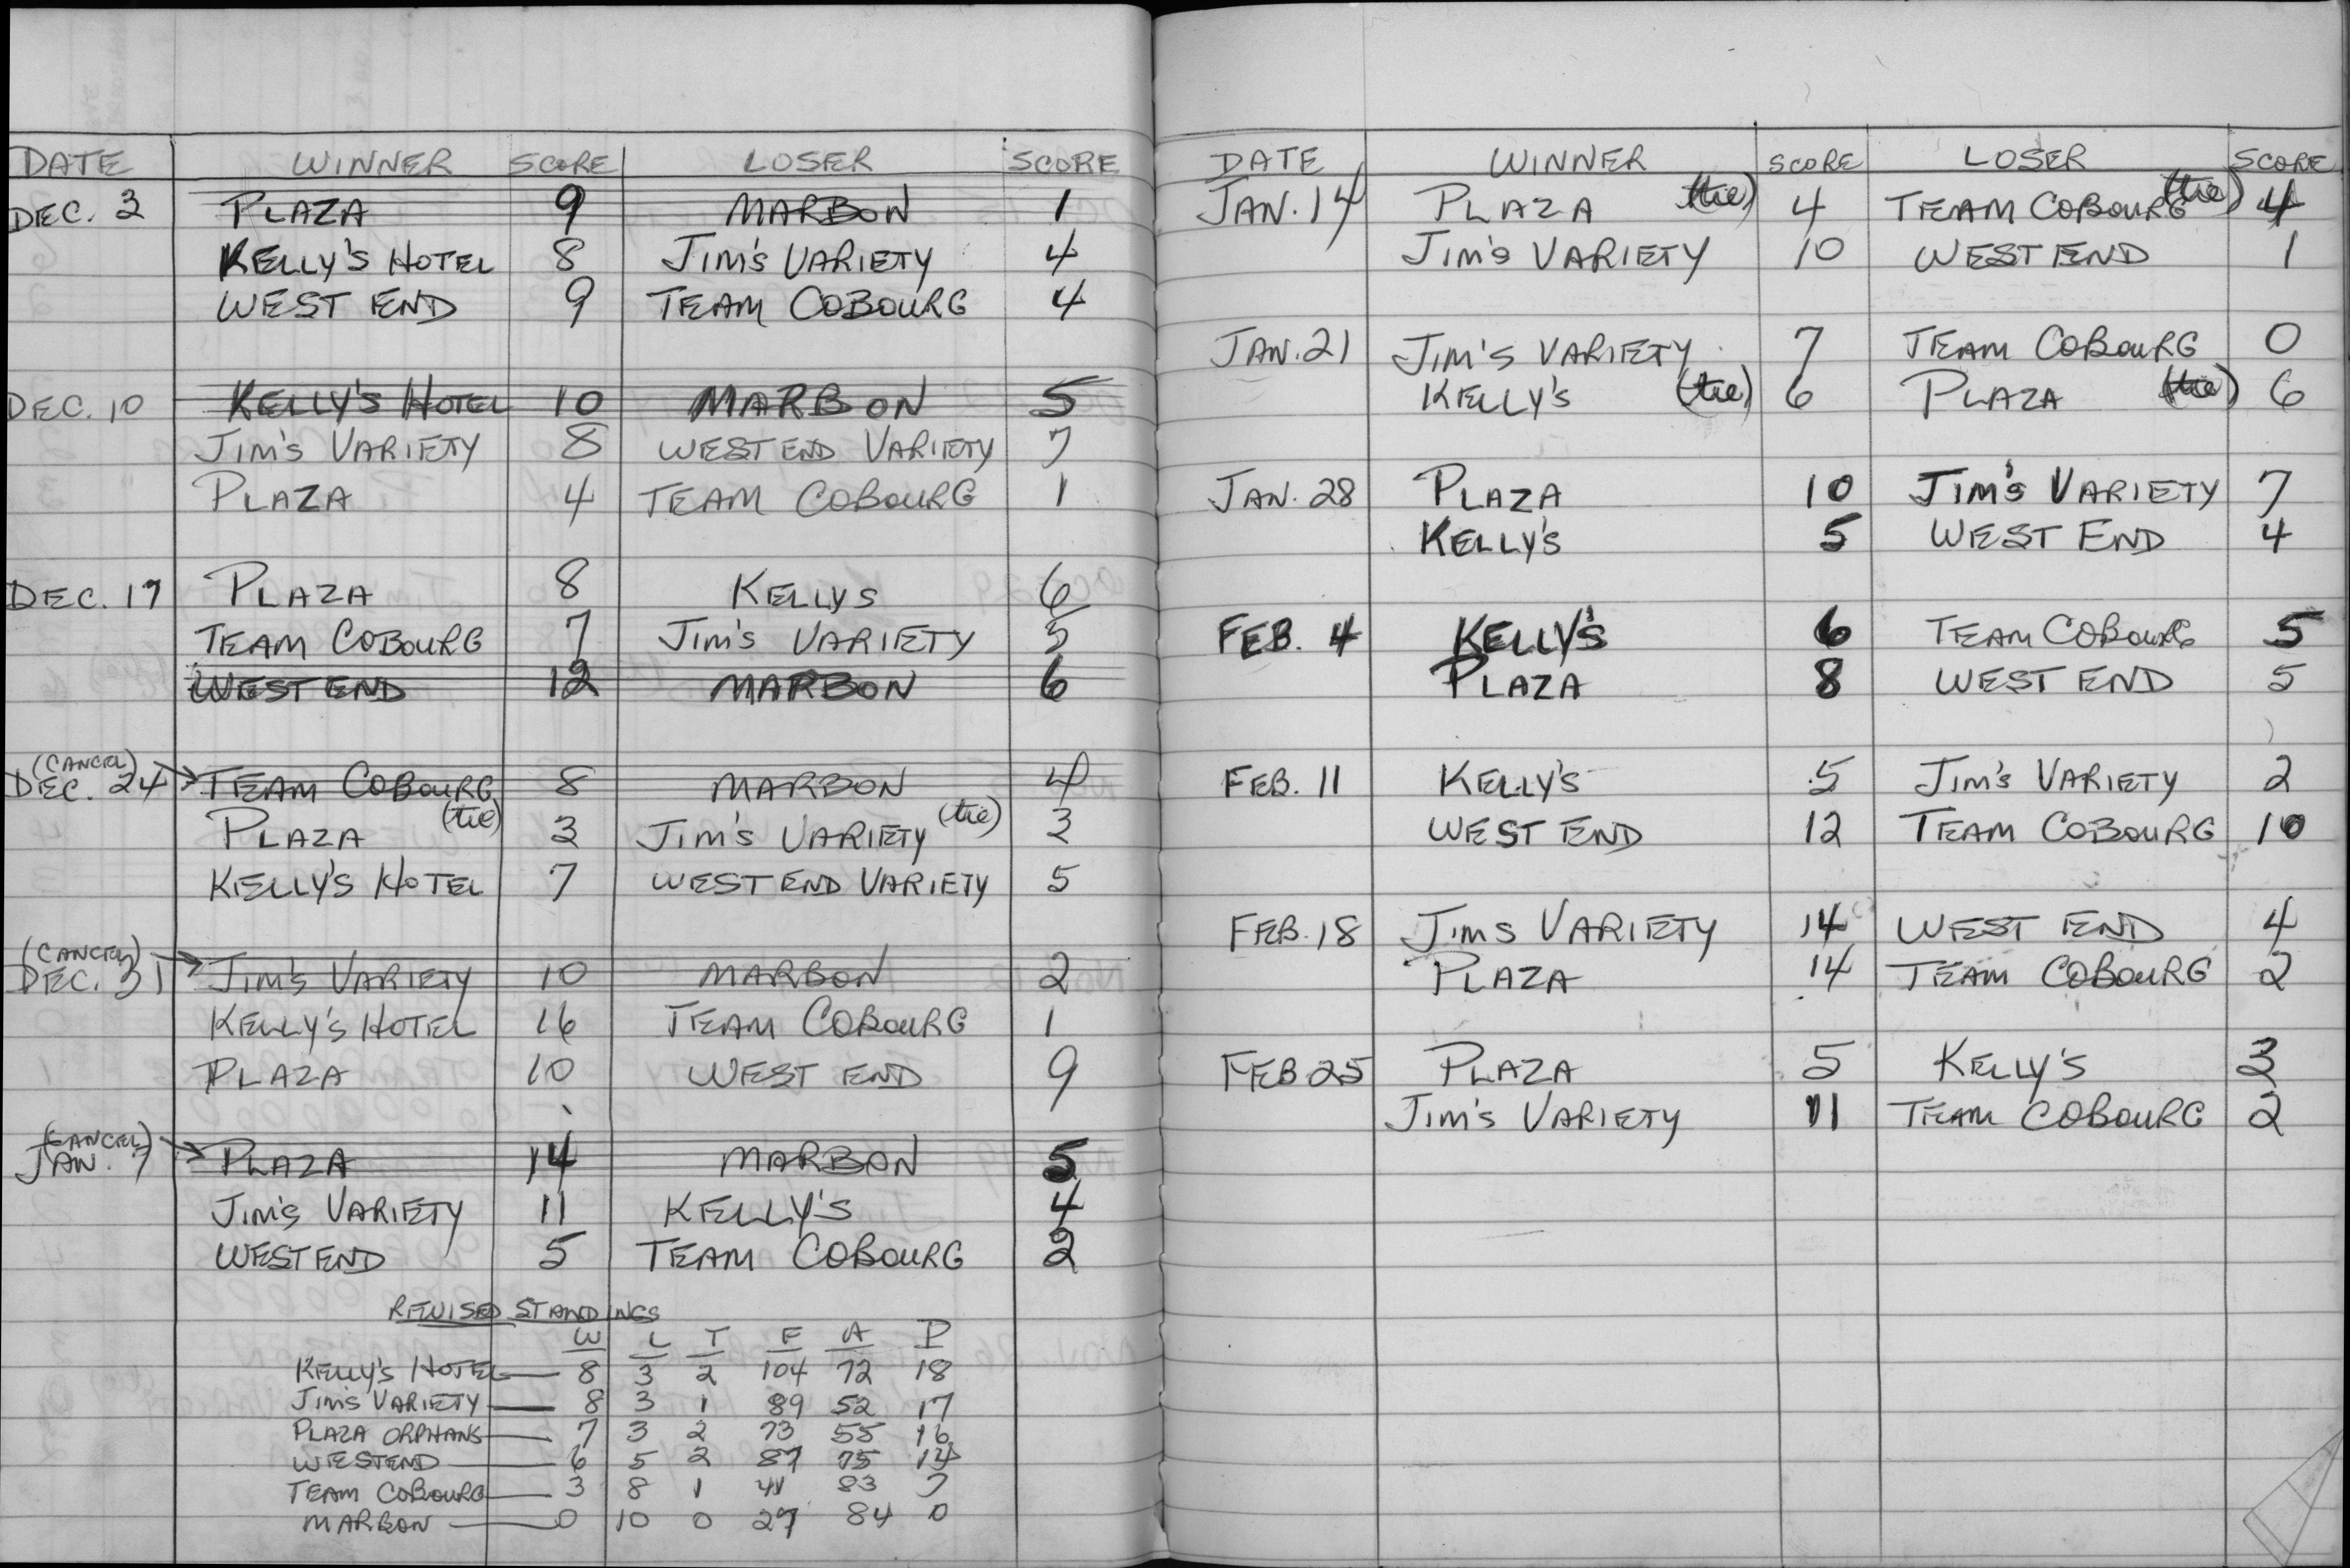 DATE WINNER SCORE LOSER SCORE
DEC. 3 PLAZA 9 MARBON 1
KELLY'S HOTEL 8 JIM'S VARIETY 4
WEST END 9 TEAM COBOURG 4
DEC. 10 KELLY'S HOTEL 10 MARBON 5
JIM'S VARIETY 8 WEST END VARIETY 7
PLAZA 4 TEAM COBOURG 1
DEC. 17 PLAZA 8 KELLYS 6
TEAM COBOURG 7 JIM'S VARIETY 5
WEST END 12 MARBON 6
(CANCEL)
DEC. 24 TEAM COBOURG 8 MARBON 4
PLAZA (tie) 3 JIM'S VARIETY (tie) 3
KELLY'S HOTEL 7 WEST END VARIETY 5
(CANCEL)
DEC. 31 JIM'S VARIETY 10 MARBON 2
KELLY'S HOTEL 16 TEAM COBOURG 1
PLAZA 10 WEST END 9
(CANCEL)
JAN. 7 PLAZA 14 MARBON 5
JIM'S VARIETY 11 KELLY'S 4
WEST END 5 TEAM COBOURG 2
REVISED STANDINGS
W L T F A P
KELLY'S HOTEL 8 3 2 104 72 18
JIM'S VARIETY 8 3 1 89 52 17
PLAZA ORPHANS 7 3 2 73 55 16
WESTEND 6 5 2 87 75 14
TEAM COBOURG 3 8 1 41 83 7
MARBON 0 10 0 27 84 0
DATE WINNER SCORE LOSER SCORE
JAN. 14 PLAZA (tie) 4 TEAM COBOURG (tie) 4
JIM'S VARIETY 10 WEST END 1
JAN. 21 JIM'S VARIETY 7 TEAM COBOURG 0
KELLY'S (tie) 6 PLAZA (tie) 6
JAN. 28 PLAZA 10 JIM'S VARIETY 7
KELLY'S 5 WEST END 4
FEB. 4 KELLY'S 6 TEAM COBOURG 5
PLAZA 8 WEST END 5
FEB. 11 KELLY'S 5 JIM'S VARIETY 2
WEST END 12 TEAM COBOURG 10
FEB. 18 JIMS VARIETY 14 WEST END 4
PLAZA 14 TEAM COBOURG 2
FEB 25 PLAZA 5 KELLY'S 3
JIM'S VARIETY 11 TEAM COBOURG 2